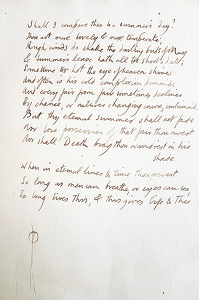 Shall I compare thee to a summer's day?
Thou art more lovely & more temperate;
Rough winds do shake the darling buds of May
& summers lease hath all too short a date;
Sometime too hot the eye of heaven shines
and often is his gold complexion dimmed,
and every fair from fair sometimes declines
By chance, or natures changing course, untrimmed
But thy eternal summer shall not fade
Nor lose possession of that fair thou owest
Nor shall Death brag thou wanderest in his
shade
When in eternal lines to time thou growest
So long as men can breathe, or eyes can see,
So long lives this, & this gives life to thee